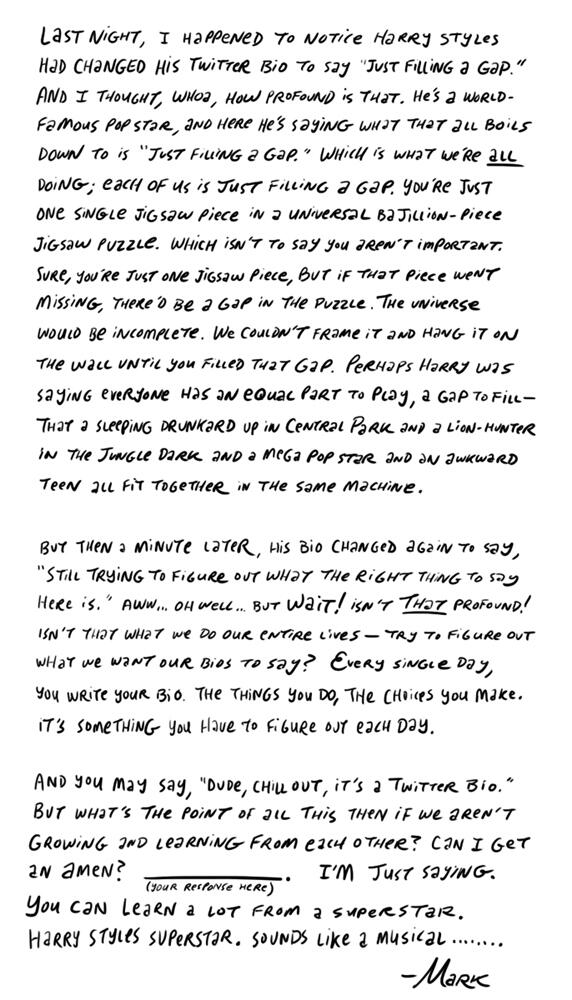 Last night, I happened to notice Harry Styles
had changed his Twitter bio to say "Just filling a gap."
And I thought, whoa, how profound is that. He's a world-
famous pop star, and here he's saying what that all boils
down to is "just filling a gap." Which is what we're all
doing; each of us is just filling a gap. You're just
one single jigsaw piece in a universal bajillion-piece
jigsaw puzzle. Which isn't to say you aren't important.
Sure, you're just one jigsaw piece, but if that piece went
missing, there'd be a gap in the puzzle. The universe
would be incomplete. We couldn't frame it and hang it on
the wall until you filled that gap. Perhaps Harry was
saying everyone has an equal part to play, a gap to fill—
that a sleeping drunkard up in Central Park and a lion-hunter
in the jungle dark and a mega pop star and an awkward
teen all fit together in the same machine.
But then a minute later, his bio changed again to say,
"Still trying to figure out what the right thing to say
here is." Aww... oh well... but wait! Isn't that profound!
Isn't that what we do our entire lives — try to figure out
what we want our bios to say? Every single day,
you write your bio. The things you do, the choices you make.
It's something you have to figure out each day.
And you may say, "Dude, chill out, it's a Twitter bio."
But what's the point of all this then if we aren't
growing and learning from each other? Can I get
an amen? __________. I'm just saying.
(your response here)
You can learn a lot from a superstar.
Harry Styles superstar. Sounds like a musical........
—Mark